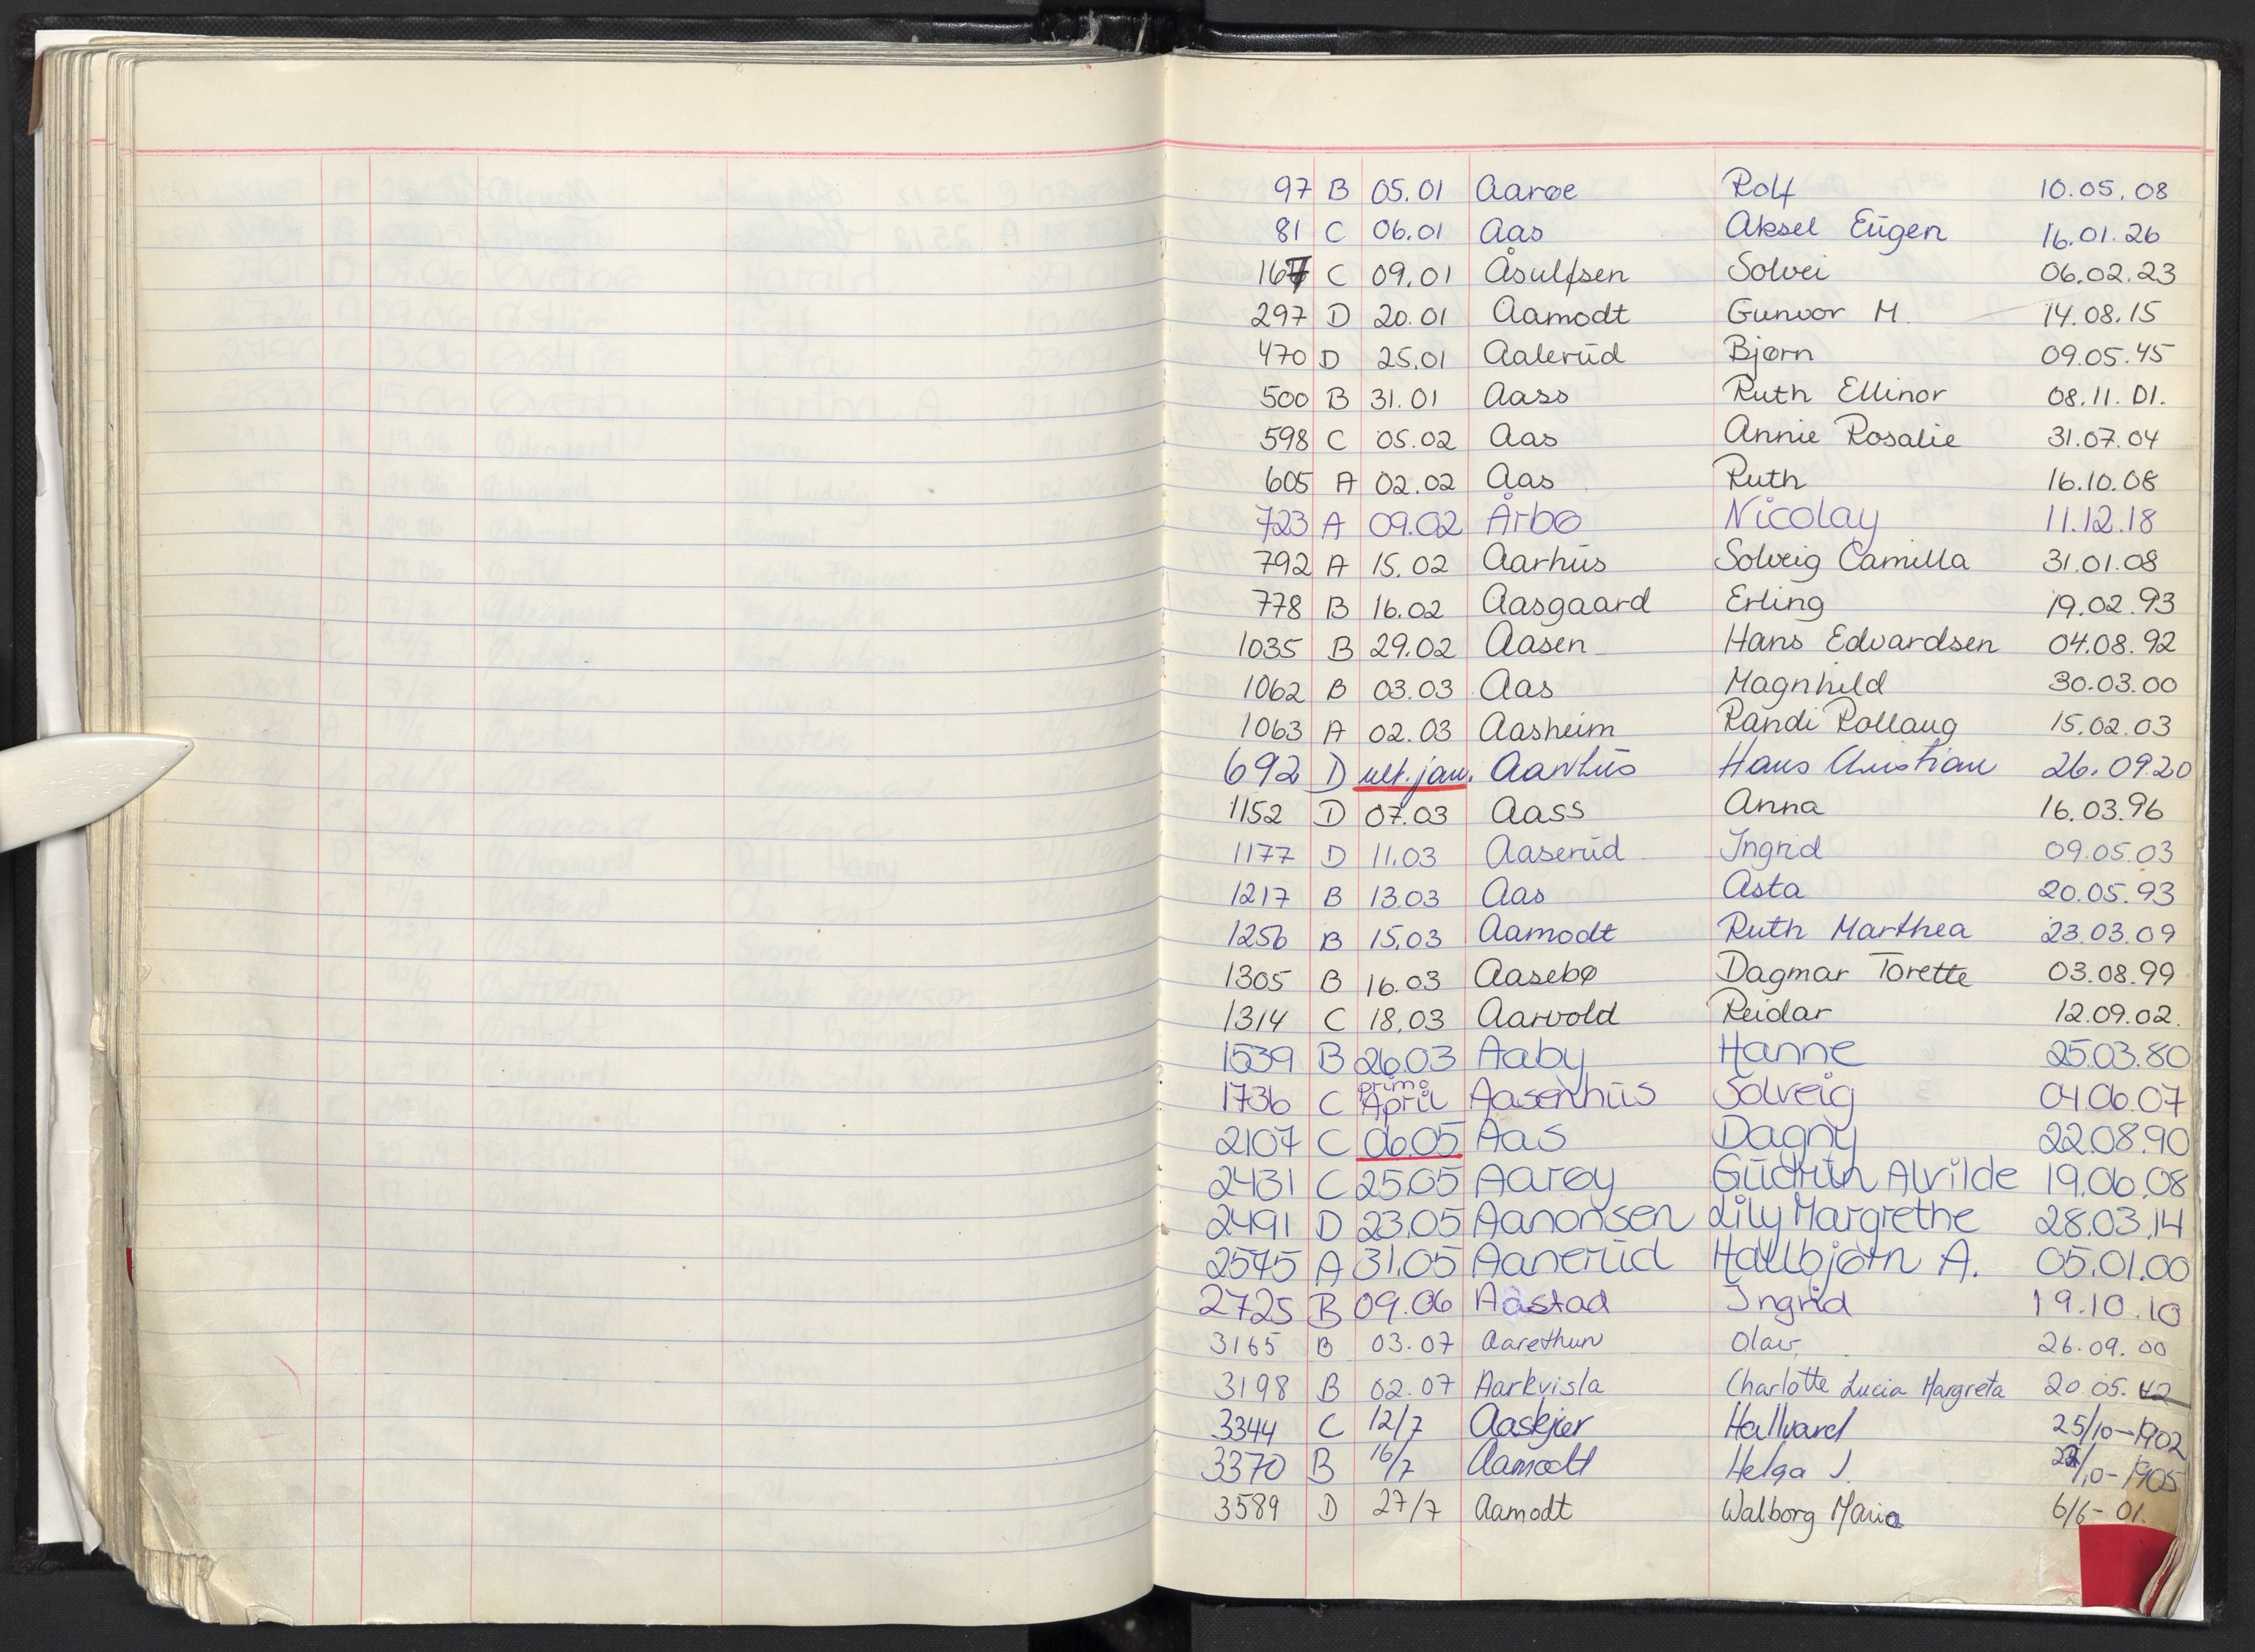 97 B 05.01 Aarøe Rolf 10.05.08
81 C 06.01 Aas Aksel Eugen 16.01.26
167 C 09.01 Åsulfsen Solvei 06.02.23
297 D 20.01 Aamodt Gunvor M. 14.08.15
470 D 25.01 Aalerud Bjørn 09.05.45
500 B 31.01 Aass Ruth Ellinor 08.11.01.
598 C 05.02 Aas Annie Rosalie 31.07.04
605 A 02.02 Aas Ruth 16.10.08
723 A 09.02 Årbo Nicolay 11.12.18
792 A 15.02 Aarhus Solveig Camilla 31.01.08
778 B 16.02 Aasgaard Erling 19.02.93
1035 B 29.02 Aasen Hans Edvardsen 04.08.92
1062 B 03.03 Aas Magnhild 30.03.00
1063 A 02.03 Aasheim Randi Rollaug 15.02.03
692 D ult. jan. Aarhus Hans Christian 26.09.20
1152 D 07.03 Aass Anna 16.03.96
1177 D 11.03 Aaserud Ingrid 09.05.03
1217 B 13.03 Aas Asta 20.05.93
1256 B 15.03 Aamodt Ruth Marthea 23.03.09
1305 B 16.03 Aasebø Dagmar Torette 03.08.99
1314 C 18.03 Aarvold Reidar 12.09.02.
1539 B 26.03 Aaby Hanne 25.03.80
1736 C primo April Aasenhus Solveig 04.06.07
2107 C 06.05 Aas Dagny 22.08.90
2431 C 25.05 Aarøy Gudrun Alvilde 19.06.08
2491 D 23.05 Aanonsen Lily Margrethe 28.03.14
2575 A 31.05 Aanerud Hallbjørn A. 05.01.00
2725 B 09.06 Aastad Ingrid 19.10.10
3165 B 03.07 Aarethun Olav 26.09.00
3198 B 02.07 Aarkvisla Charlotte Lucia Margreta 20.05.42
3344 C 12/7 Aaskjer Hallvard 25/10-1902
3370 B 16/7 Aamodt Helga J. /10-1905
3589 D 27/7 Aamodt Walborg Maria 6/6-01.